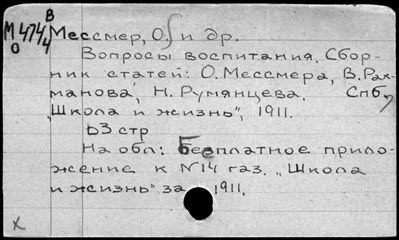 В
М 474/4
О
Мессмер, О. и др.
Вопросы воспитания. Сбор-
ник статей: О. Мессмера, В. Рах-
манова, Н. Румянцева. Спб,
„Школа и жизнь", 1911.
63 стр
На обл: Бесплатное прило-
жение к N14 газ. „Школа
и жизнь" за 1911.
х